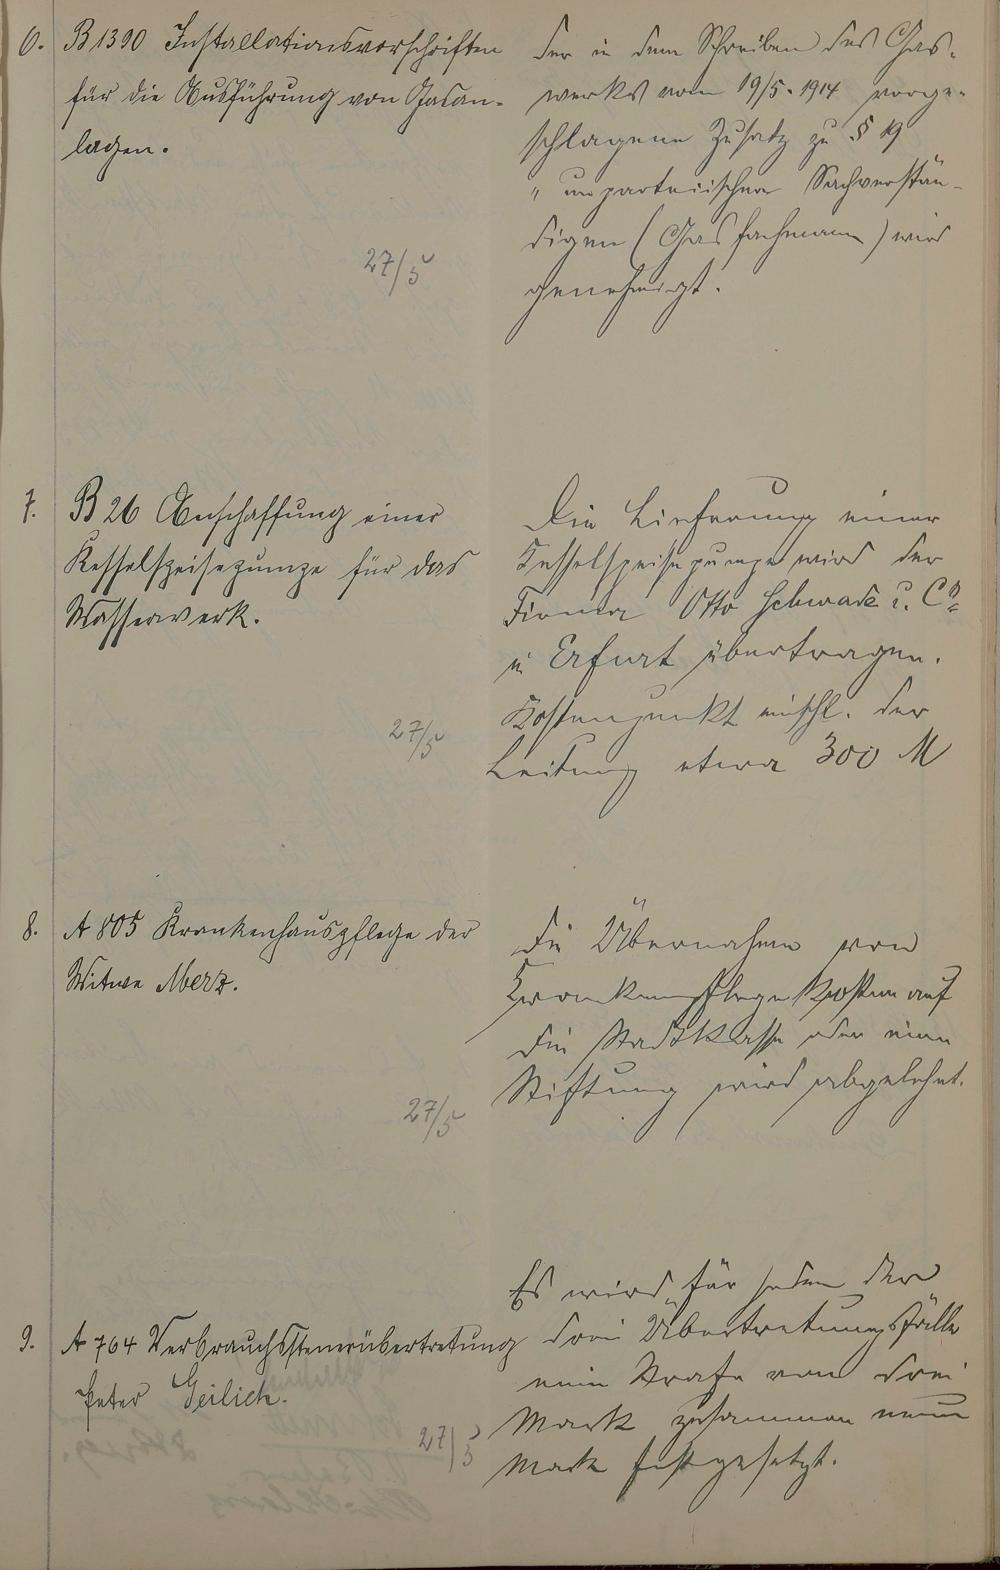 6. B 1390 Installationsvorschriften
für die Ausführung von Gasan-
lagen.
27/5
der in dem Schreiben des Gas-
werks vom 19/5. 1914 vorge-
schlagene Zusatz zu § 19
"unparteiischen Sachverstän-
digen (Gasfachmann) wird
genehmigt.
7. B 26 Anschaffung einer
Kesselspeisepumpe für das
Wasserwerk.
27/5
Die Lieferung einer
Kesselspeisepumpe wird der
Firma Otto Schwade u. Co
in Erfurt übertragen.
Kostenpunkt einschl. der
Leitung etwa 300 M
8. A 805 Krankenhauspflege der
Witwe Merz.
27/5
Die Übernahme von
Krankenpflegekosten auf
die Stadtkasse oder eine
Stiftung wird abgelehnt.
9. A 764 Verbrauchssteuerübertretung
Peter Geilich.
27/5
Es wird für jeden der
drei Übertretungsfälle
eine Strafe von drei
Mark zusammen neun
Mark festgesetzt.